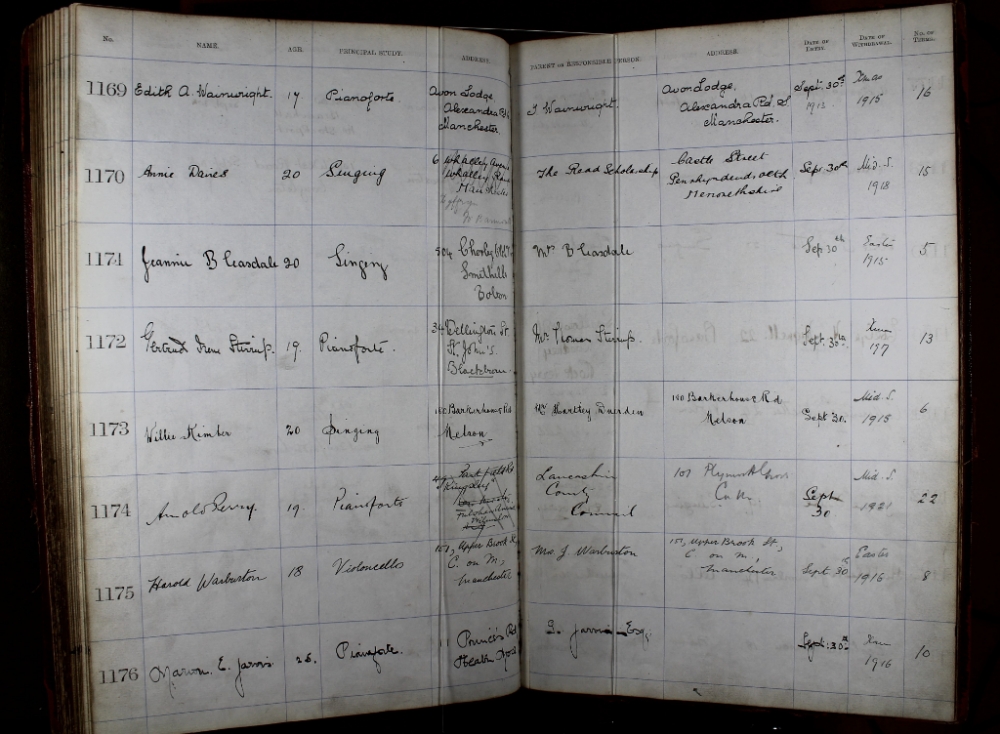 No. NAME. AGE. PRINCIPAL STUDY. ADDRESS. PARENT OR RESPONSIBLE PERSON. ADDRESS. DATE OF ENTRY. DATE OF WITHDRAWAL. No. OF TERMS.
1169 Edith A. Wainwright. 17 Pianoforte Avon Lodge
Alexandra Rd. S.
Manchester.
J Wainwright.
Avon Lodge.
Alexandra Rd. S
Manchester.
Sept. 30th
1912
Xmas
1915
16
1170 Annie Davies 20 Singing
6 Whalley
Whalley
The Read Scholarship
Castle Street
Penrhyndeudraeth
Merionethshire
Sep. 30th
Mid. S.
1918
15
1171 Jeannie Bleasdale 20 Singing
504 Chorley Old
Smithills
Bolton
Mr B Bleasdale
Sep 30th
Easter
1915
5
1172 Gertrude Irene Stirrup. 19. Pianoforte.
34 Wellington St
St. John's.
Blackburn
Mr. Thomas Stirrup.
Sept. 30th
Xmas
13
1173 Willie Kimber 20 Singing
Barkerhouse Rd
Nelson
Hartley Duerden
Barkerhouse Rd
Nelson
Sept 30.
Mid S.
1915
6
1174 Arnold Perry. 19. Pianoforte
Lancashire
County
Council
107 Plymouth Grove
Sept
30
Mid. S.
1921
22
1175 Harold Warburton 18 Violoncello
151, Upper Brook St,
C. on M.,
Manchester
Mrs. J. Warburton
151, Upper Brook St,
C. on M.,
Manchester
Sept 30th
Easter
1916
8
1176 E. Jarvis. Pianoforte.
Heaton
Jarvis Esq.
Sept. 30th
Xmas
1916
10